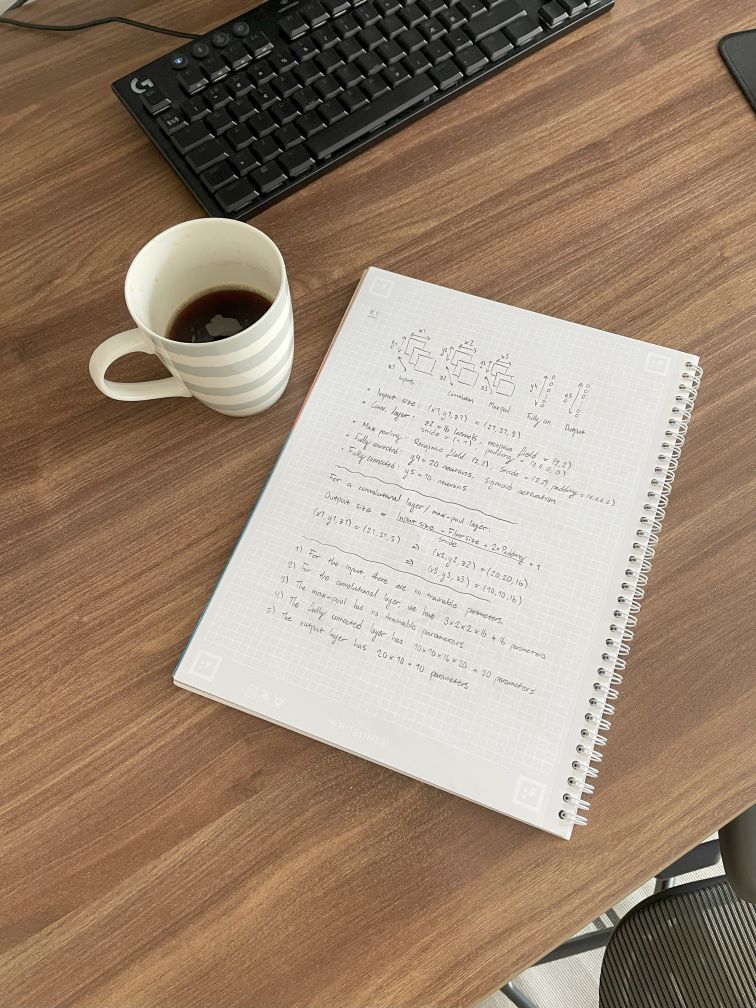 G
x1
y1
z1
Inputs
x2
y2
z2
Convolution
x3
y3
z3
Max pool
y4
Fully con
y5
Output
• Input size: (x1, y1, z1) = (21, 21, 3)
• Conv. layer: z2 = 16 kernels, receptive field = (2,2)
stride = (1,1), padding = (0,0,0,0)
• Max pooling: Receptive field (2,2), stride = (2,2), padding = (0,0,0,0)
• Fully connected: y4 = 20 neurons, sigmoid activation
• Fully connected: y5 = 10 neurons
For a convolutional layer / max-pool layer:
Output size = Input size - Filter size + 2 x Padding + 1
stride
(x1, y1, z1) = (21, 21, 3) ⇒ (x2, y2, z2) = (20, 20, 16)
⇒ (x3, y3, z3) = (10, 10, 16)
1) For the input there are no trainable parameters.
2) For the convolutional layer we have 3x2x2x16 + 16 parameters
3) The max-pool has no trainable parameters
4) The fully connected layer has 10x10x16x20 + 20 parameters
5) The output layer has 20x10 + 10 parameters